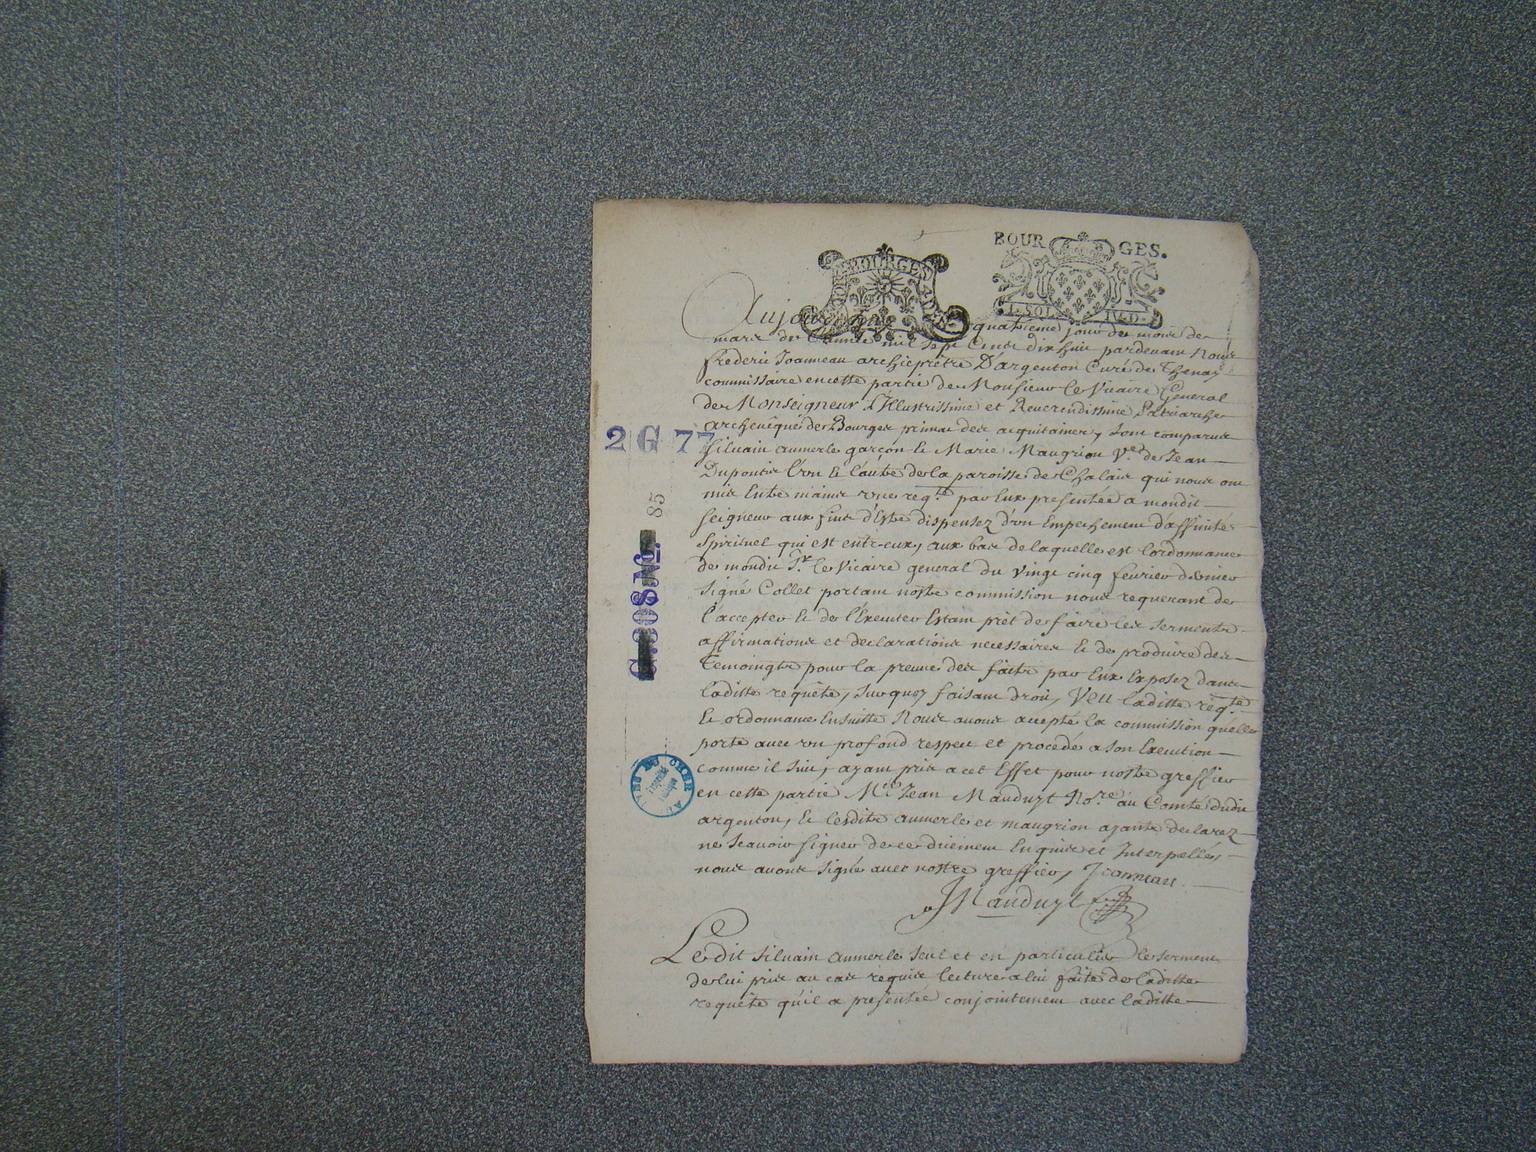 BOURGES.
BOURGES
I. SOL. IV. D.
Aujourdhuy quatrieme jour du mois de
mars de l'année mil sept cents dix huit pardevant Nous
frederic Joanneau archiprêtre D'argenton Curé de Thenay
commissaire en cette partie de Monsieur le Vicaire General
de Monseigneur L'Illustrissime et Reverendissime Patriarche
archevêque de Bourges primat des acquitaines, sont comparus
Silvain aumerle garçon & Marie Maugrion Ve. de Jean
Dupontis l'un & l'autre de la paroisse de Chalais qui nous ont
mis entre mains une reqte. par eux presentée a mondit
seigneur aux fins d'estre dispensez d'un empechement d'affinité
spirituel qui est entr-eux, au bas de laquelle est l'ordonnance
de mondit Sr. le Vicaire general du vingt cinq fevrier dernier
signé Collet portant nostre commission nous requerant de
l'accepter & de l'executer estant prêt de faire les serments
affirmations et declarations necessaires & de produire des
temoingts pour la preuve des faits par eux exposez dans
laditte requête, surquoy faisant droit, Veu laditte reqte
& ordonnance ensuitte Nous avons accepté la commission qu'elle
porte avec un profond respect et procedé a son execution
comme il suit, ayant pris a cet effet pour nostre greffier
en cette partie Me. Jean Manduyt Nore. au Comté dudit
argenton, & lesdits aumerle et maugrion ayants declarez
ne scavoir signer de ce duëment enquis et interpellés
nous avons signé avec nostre greffier, Joanneau
JManduyt
Ledit silvain aumerle seul et en particulier le serment
de lui pris au cas requis lecture a lui faite de laditte
requête qu'il a presentée conjointement avec laditte
2 G 77
85
No.
DU CHER